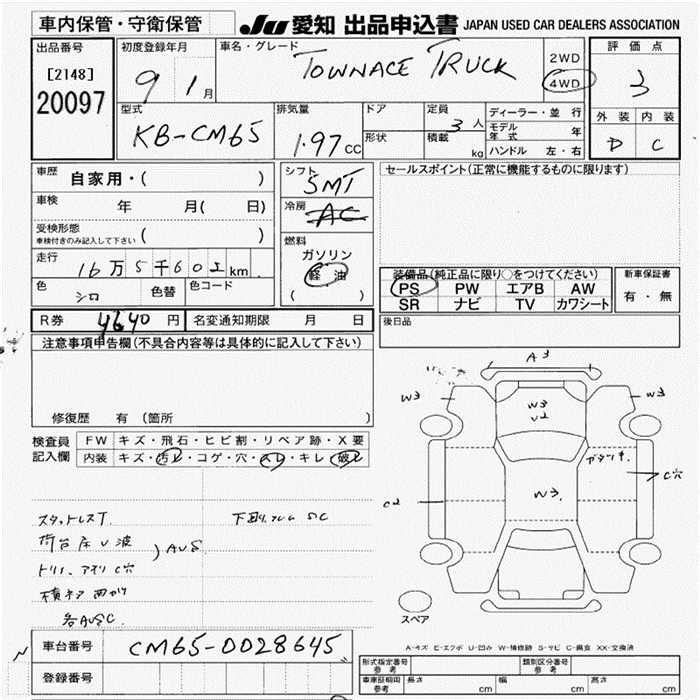 車内保管・守衛保管 JU 愛知 出品申込書 JAPAN USED CAR DEALERS ASSOCIATION
出品番号 初度登録年月 車名・グレード 評価点
[2148] 9 1月 TOWNACE TRUCK 2WD 3
20097 4WD
型式 排気量 ドア 定員 3人 ディーラー・並行 外装 内装
KB-CM65 1.97 CC 形状 積載 kg モデル年式 年 D C
ハンドル 左・右
車歴 自家用・( ) シフト SMT セールスポイント(正常に機能するものに限ります)
車検 年 月( 日) 冷房 AC
受検形態 ( )
車検付きのみ記入して下さい
燃料
走行 16万5千602km ガソリン
軽油
( )
色 シロ 色替 色コード
装備品(純正品に限り○をつけてください) 新車保証書
PS PW エアB AW 有・無
SR ナビ TV カワシート
R券 4640円 名変通知期限 月 日 後日品
注意事項申告欄(不具合内容等は具体的に記入して下さい)
修復歴 有 (箇所 )
検査員 FW キズ・飛石・ヒビ割・リペア跡・X要
記入欄 内装 キズ・汚レ・コゲ・穴・スレ・キレ・破レ
A3
W3 W3
W3
U2
C2 W3. C穴
スタットレスT. 下回リフレム SC
荷台床U波
) AUS
各AUSC.
スペア
車台番号 CM65-0028645
登録番号
A-キズ E-エクボ U-凹み W-補修跡 S-サビ C-腐食 XX-交換済
形式指定番号 参考 類別区分番号 参考
車庫証明用 参考 長さ cm 幅 cm 高さ cm